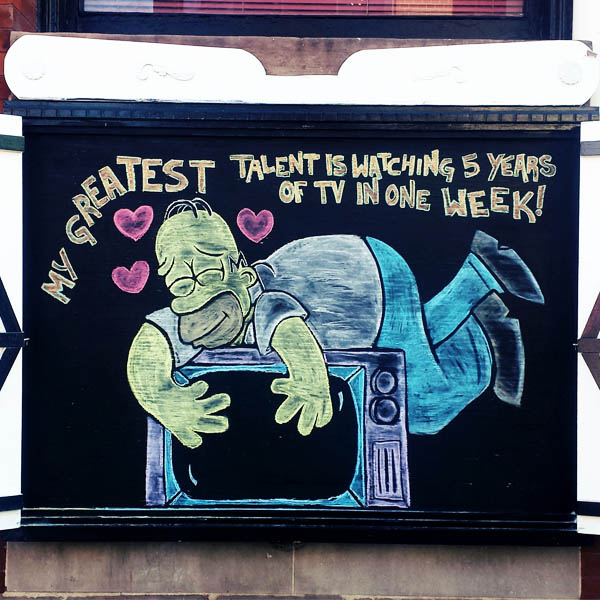 MY GREATEST
TALENT IS WATCHING 5 YEARS
OF TV IN ONE WEEK!